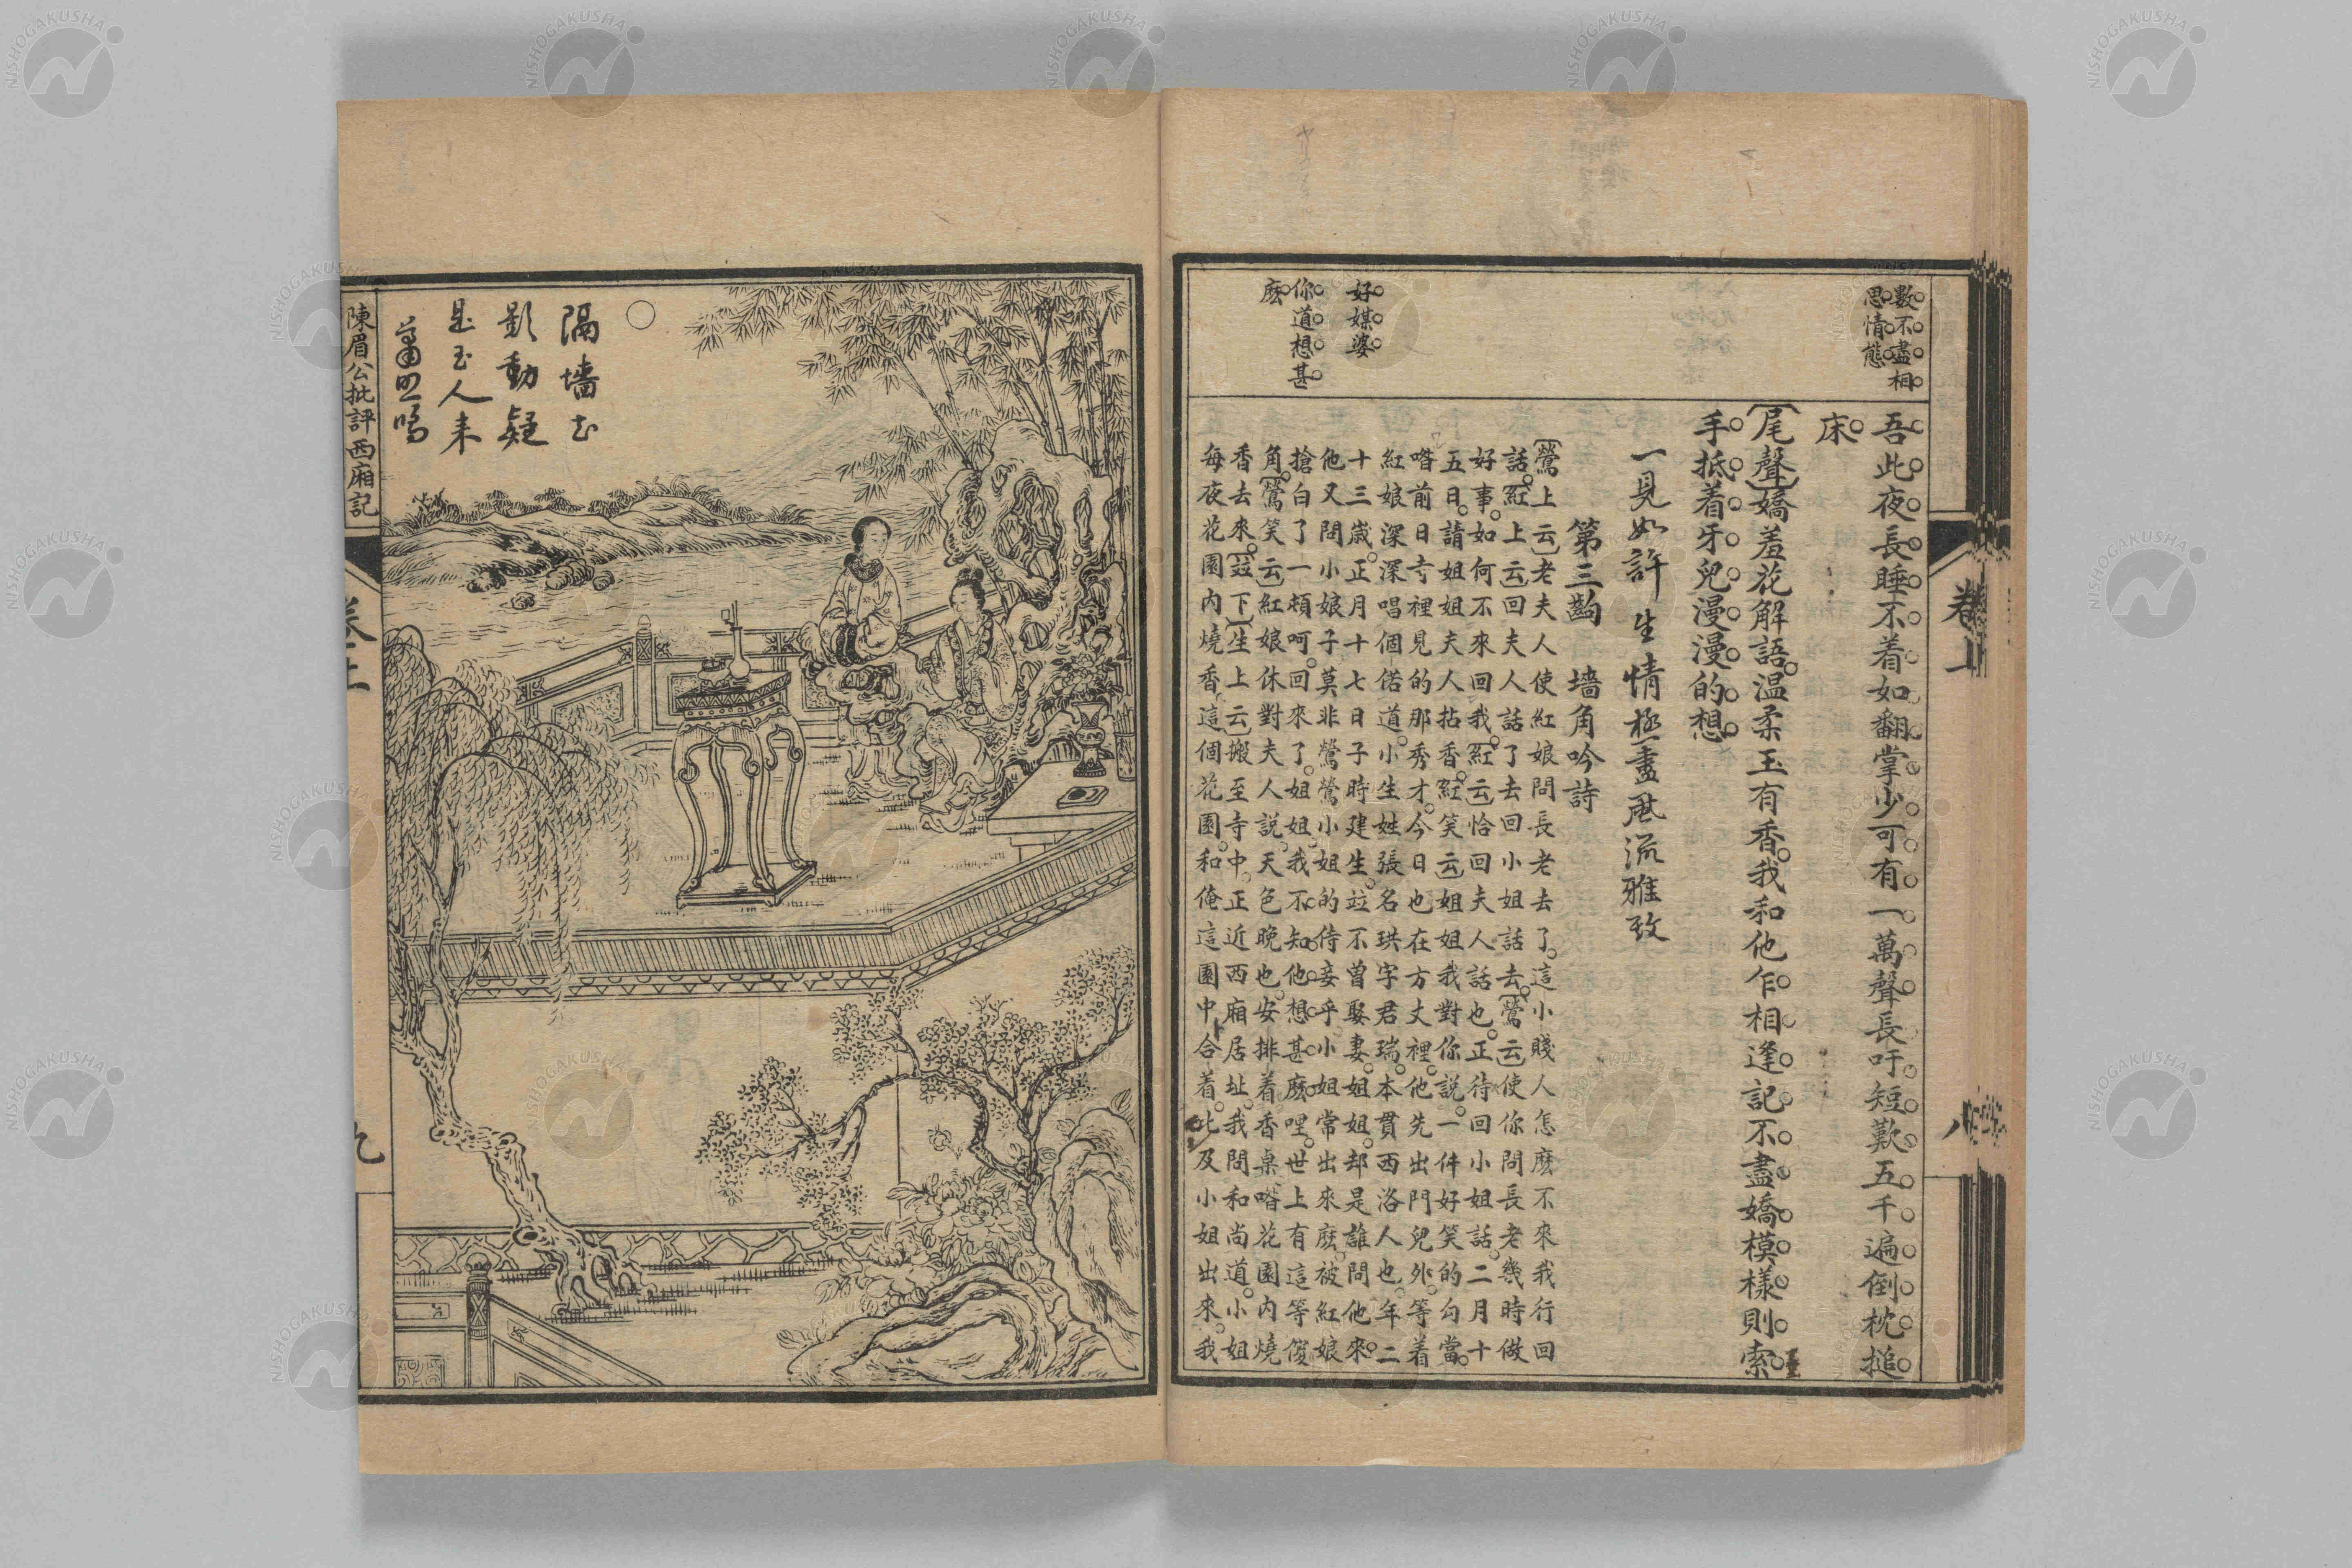 數不盡相
思情態
好媒婆
你道想甚
麽
吾此夜長睡不着如翻掌少可有一萬聲長吁短歎五千遍倒枕搥
床
【尾聲】嬌羞花解語温柔玉有香我和他乍相逢記不盡嬌模樣則索
手抵着牙兒漫漫的想
一見如許生情極盡風流雅致
第三齣　墻角吟詩
【鶯上云】老夫人使紅娘問長老去了這小賤人怎麽不來我行回
話【紅上云】回夫人話了去回小姐話去【鶯云】使你問長老幾時做
好事如何不來回我【紅云】恰回夫人話也正待回小姐話二月十
五日請姐姐夫人拈香【紅笑云】姐姐我對你説一件好笑的勾當
喒前日寺裡見的那秀才今日也在方丈裡他先出門兒外等着
紅娘深深唱個偌道小生姓張名珙字君瑞本貫西洛人也年二
十三歲正月十七日子時建生竝不曾娶妻姐姐却是誰問他來
他又問小娘子莫非鶯鶯小姐的侍妾乎小姐常出來麽被紅娘
搶白了一頓呵回來了姐姐我不知他想甚麽哩世上有這等傻
角【鶯笑云】紅娘休對夫人説天色晚也安排着香桌喒花園内燒
香去來【竝下】【生上云】搬至寺中正近西廂居址我問和尚道小姐
每夜花園内燒香這個花園和俺這園中合着比及小姐出來我
卷上
八
隔墻花
影動疑
是玉人来
陳眉公批評西廂記
卷上
九
NISHOGAKUSHA